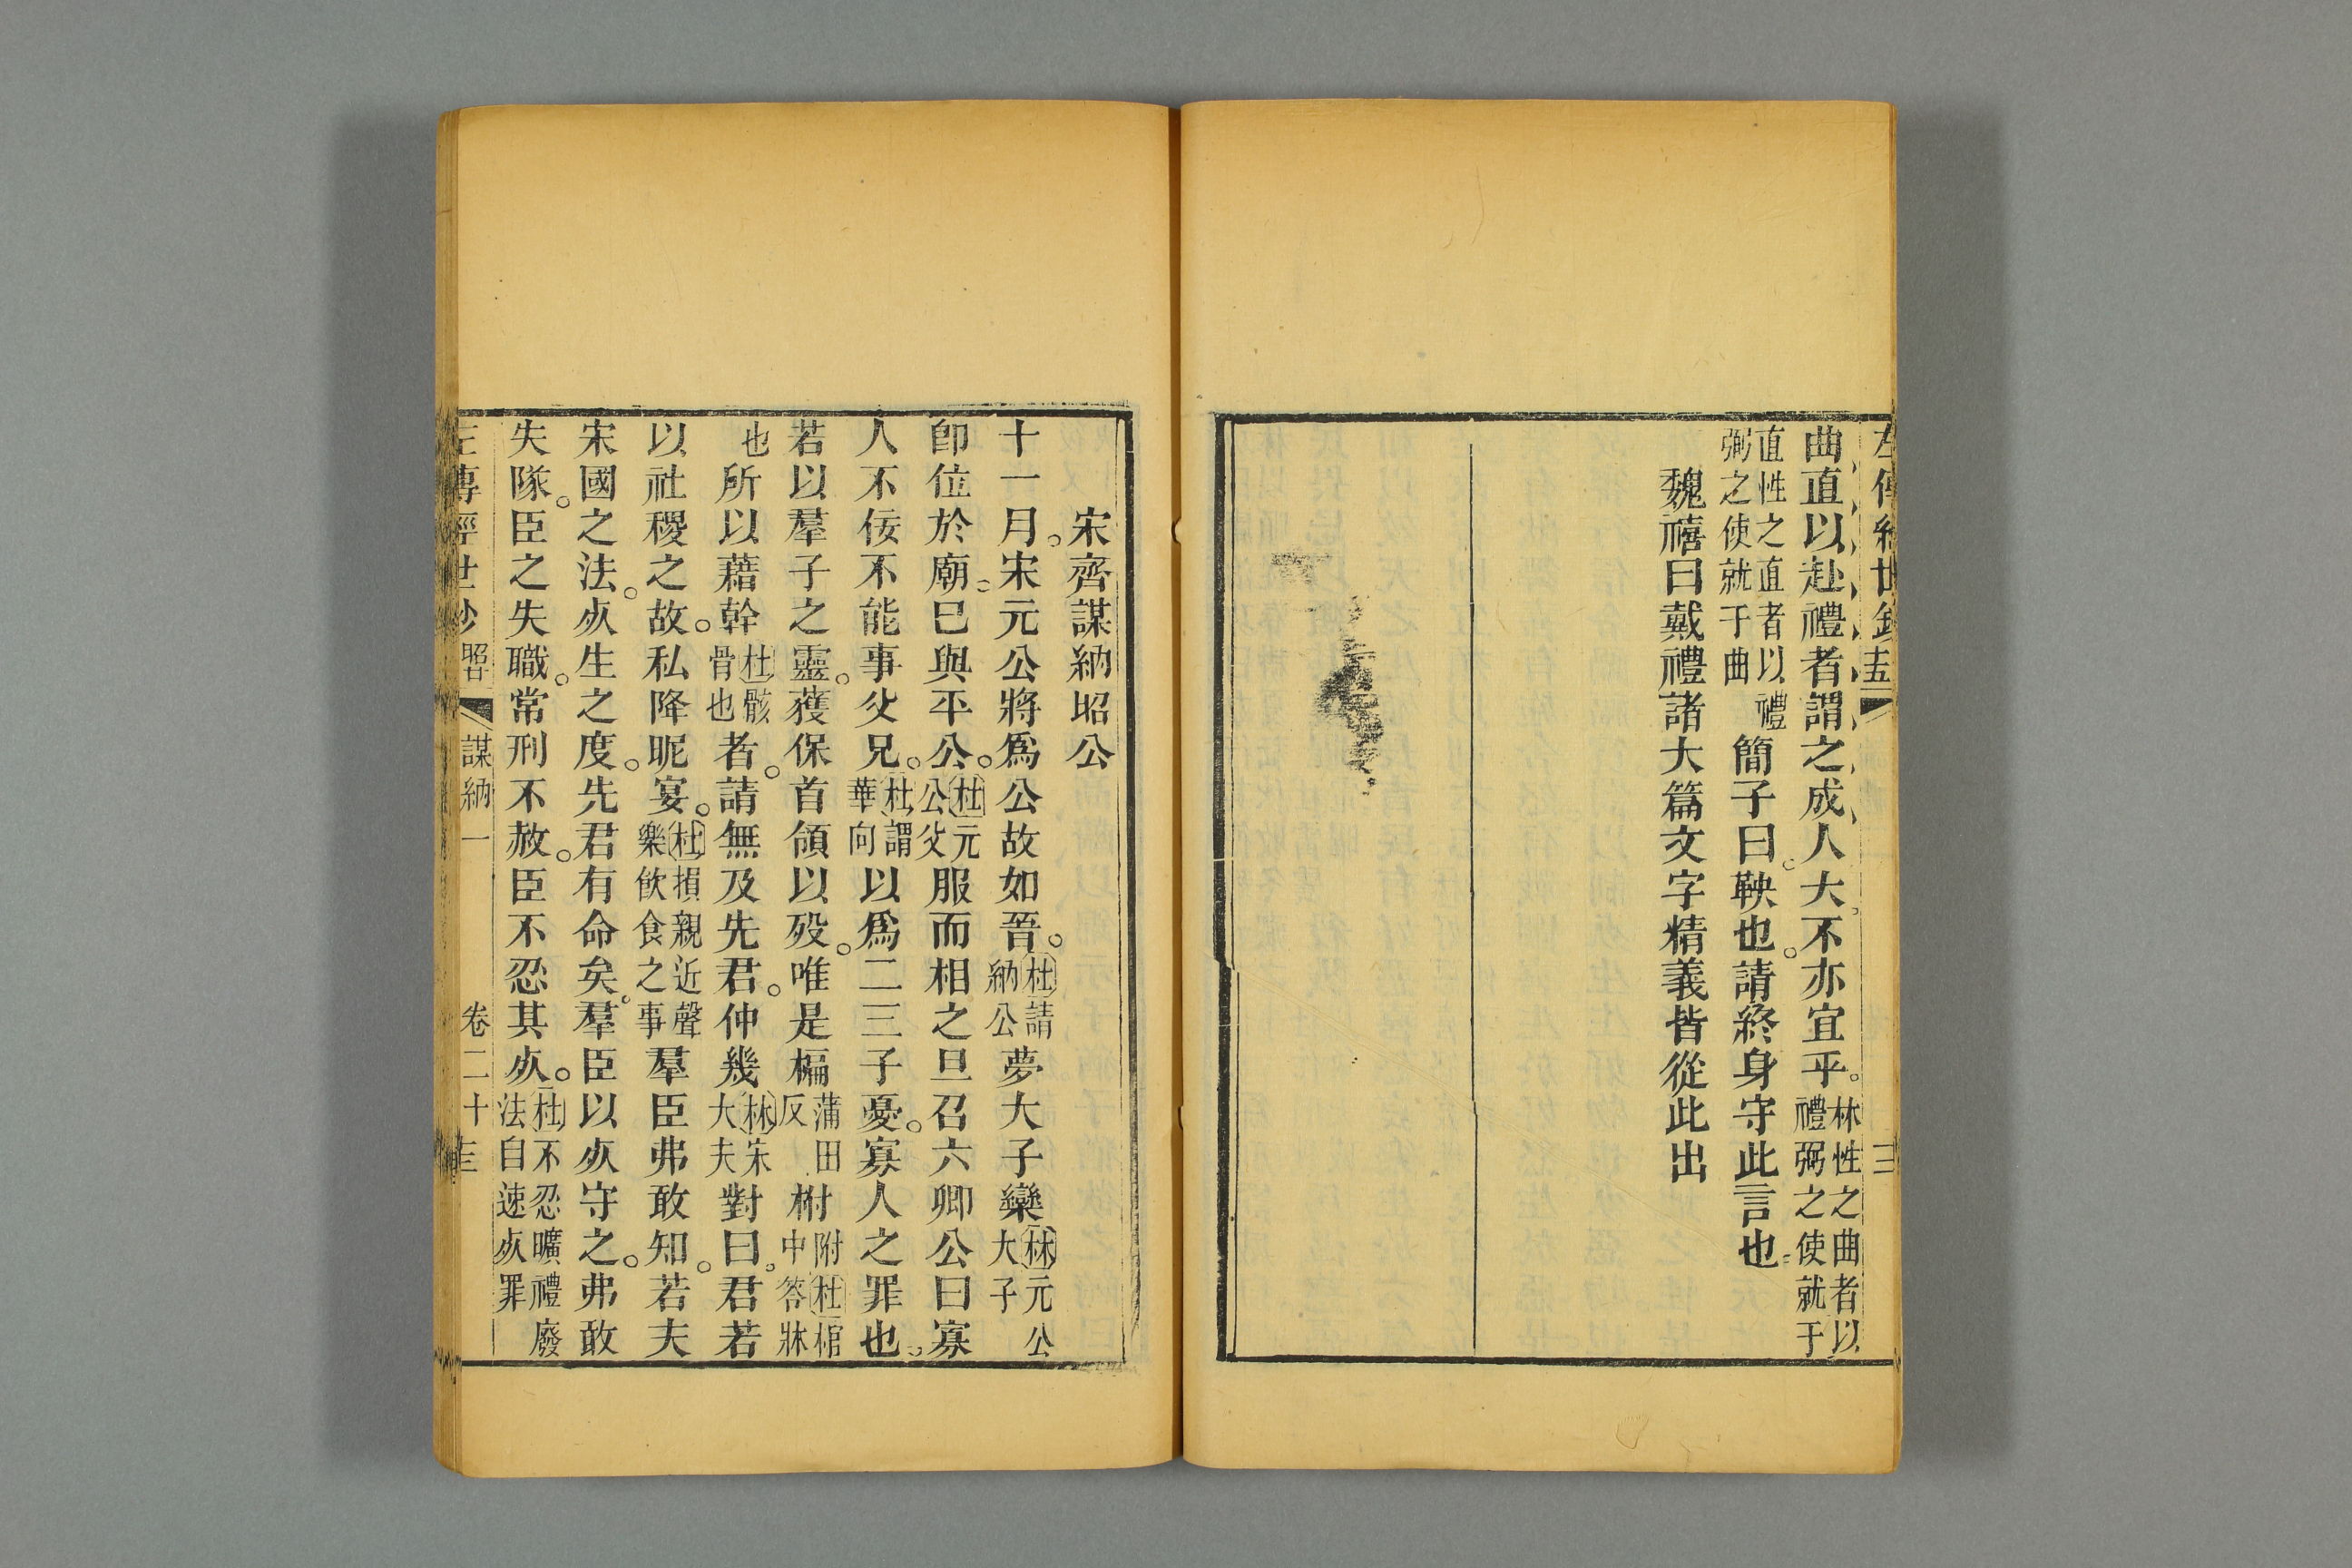 左傳經世鈔 三
曲直以赴禮者謂之成人大。不亦宜乎。林性之曲者以禮弼之使就于
直性之直者以禮弼之使就于曲簡子曰。鞅也。請終身守此言也
魏禧曰戴禮諸大篇文字精義皆從此出
宋齊謀納昭公
十一月。宋元公將爲公故如晉。杜請納公夢大子欒林元公大子
卽位於廟。巳與平公。杜元公父服而相之旦召六卿公曰寡
人不佞不能事父兄。杜謂華向以爲二三子憂。寡人之罪也。
若以羣子之靈。獲保首領以歿。唯是楄蒲田反柎附杜棺中笭牀
也所以藉幹杜骸骨也者。請無及先君。仲幾林宋大夫對曰。君若
以社稷之故。私降昵宴。杜損親近聲樂飮食之事羣臣弗敢知。若夫
宋國之法。死生之度。先君有命矣。羣臣以死守之。弗敢
失隊。臣之失職。常刑不赦。臣不忍其死。杜不忍曠禮廢法自速死罪
左傳經世鈔 昭 謀納一 卷二十